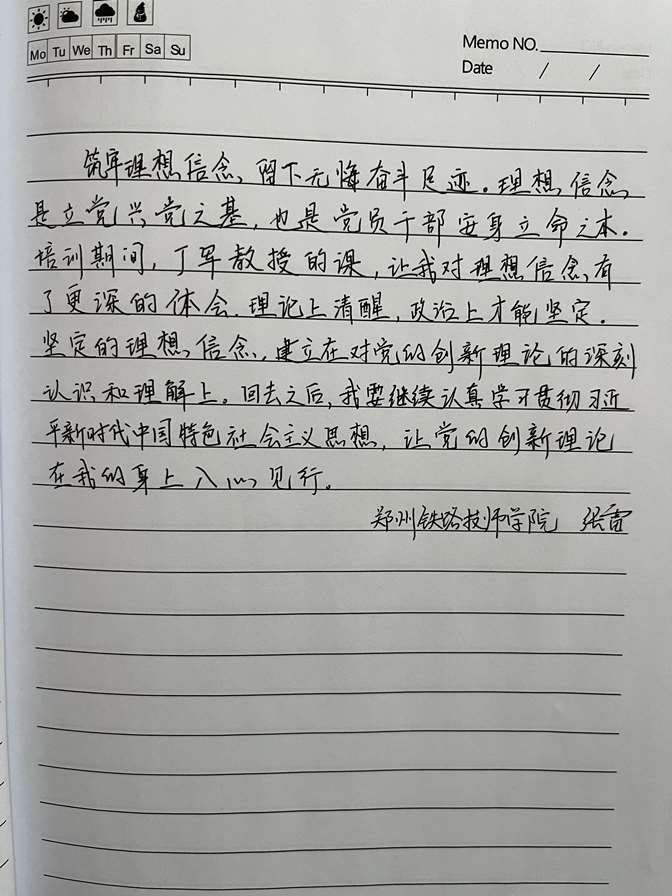 Mo Tu We Th Fr Sa Su
Memo NO.
Date / /
筑牢理想信念，留下无悔奋斗足迹。理想信念，
是立党兴党之基，也是党员干部安身立命之本。
培训期间，丁军教授的课，让我对理想信念有
了更深的体会。理论上清醒，政治上才能坚定。
坚定的理想信念，建立在对党的创新理论的深刻
认识和理解上。回去之后，我要继续认真学习贯彻习近
平新时代中国特色社会主义思想，让党的创新理论
在我的身上入心见行。
郑州铁路技师学院 张雷